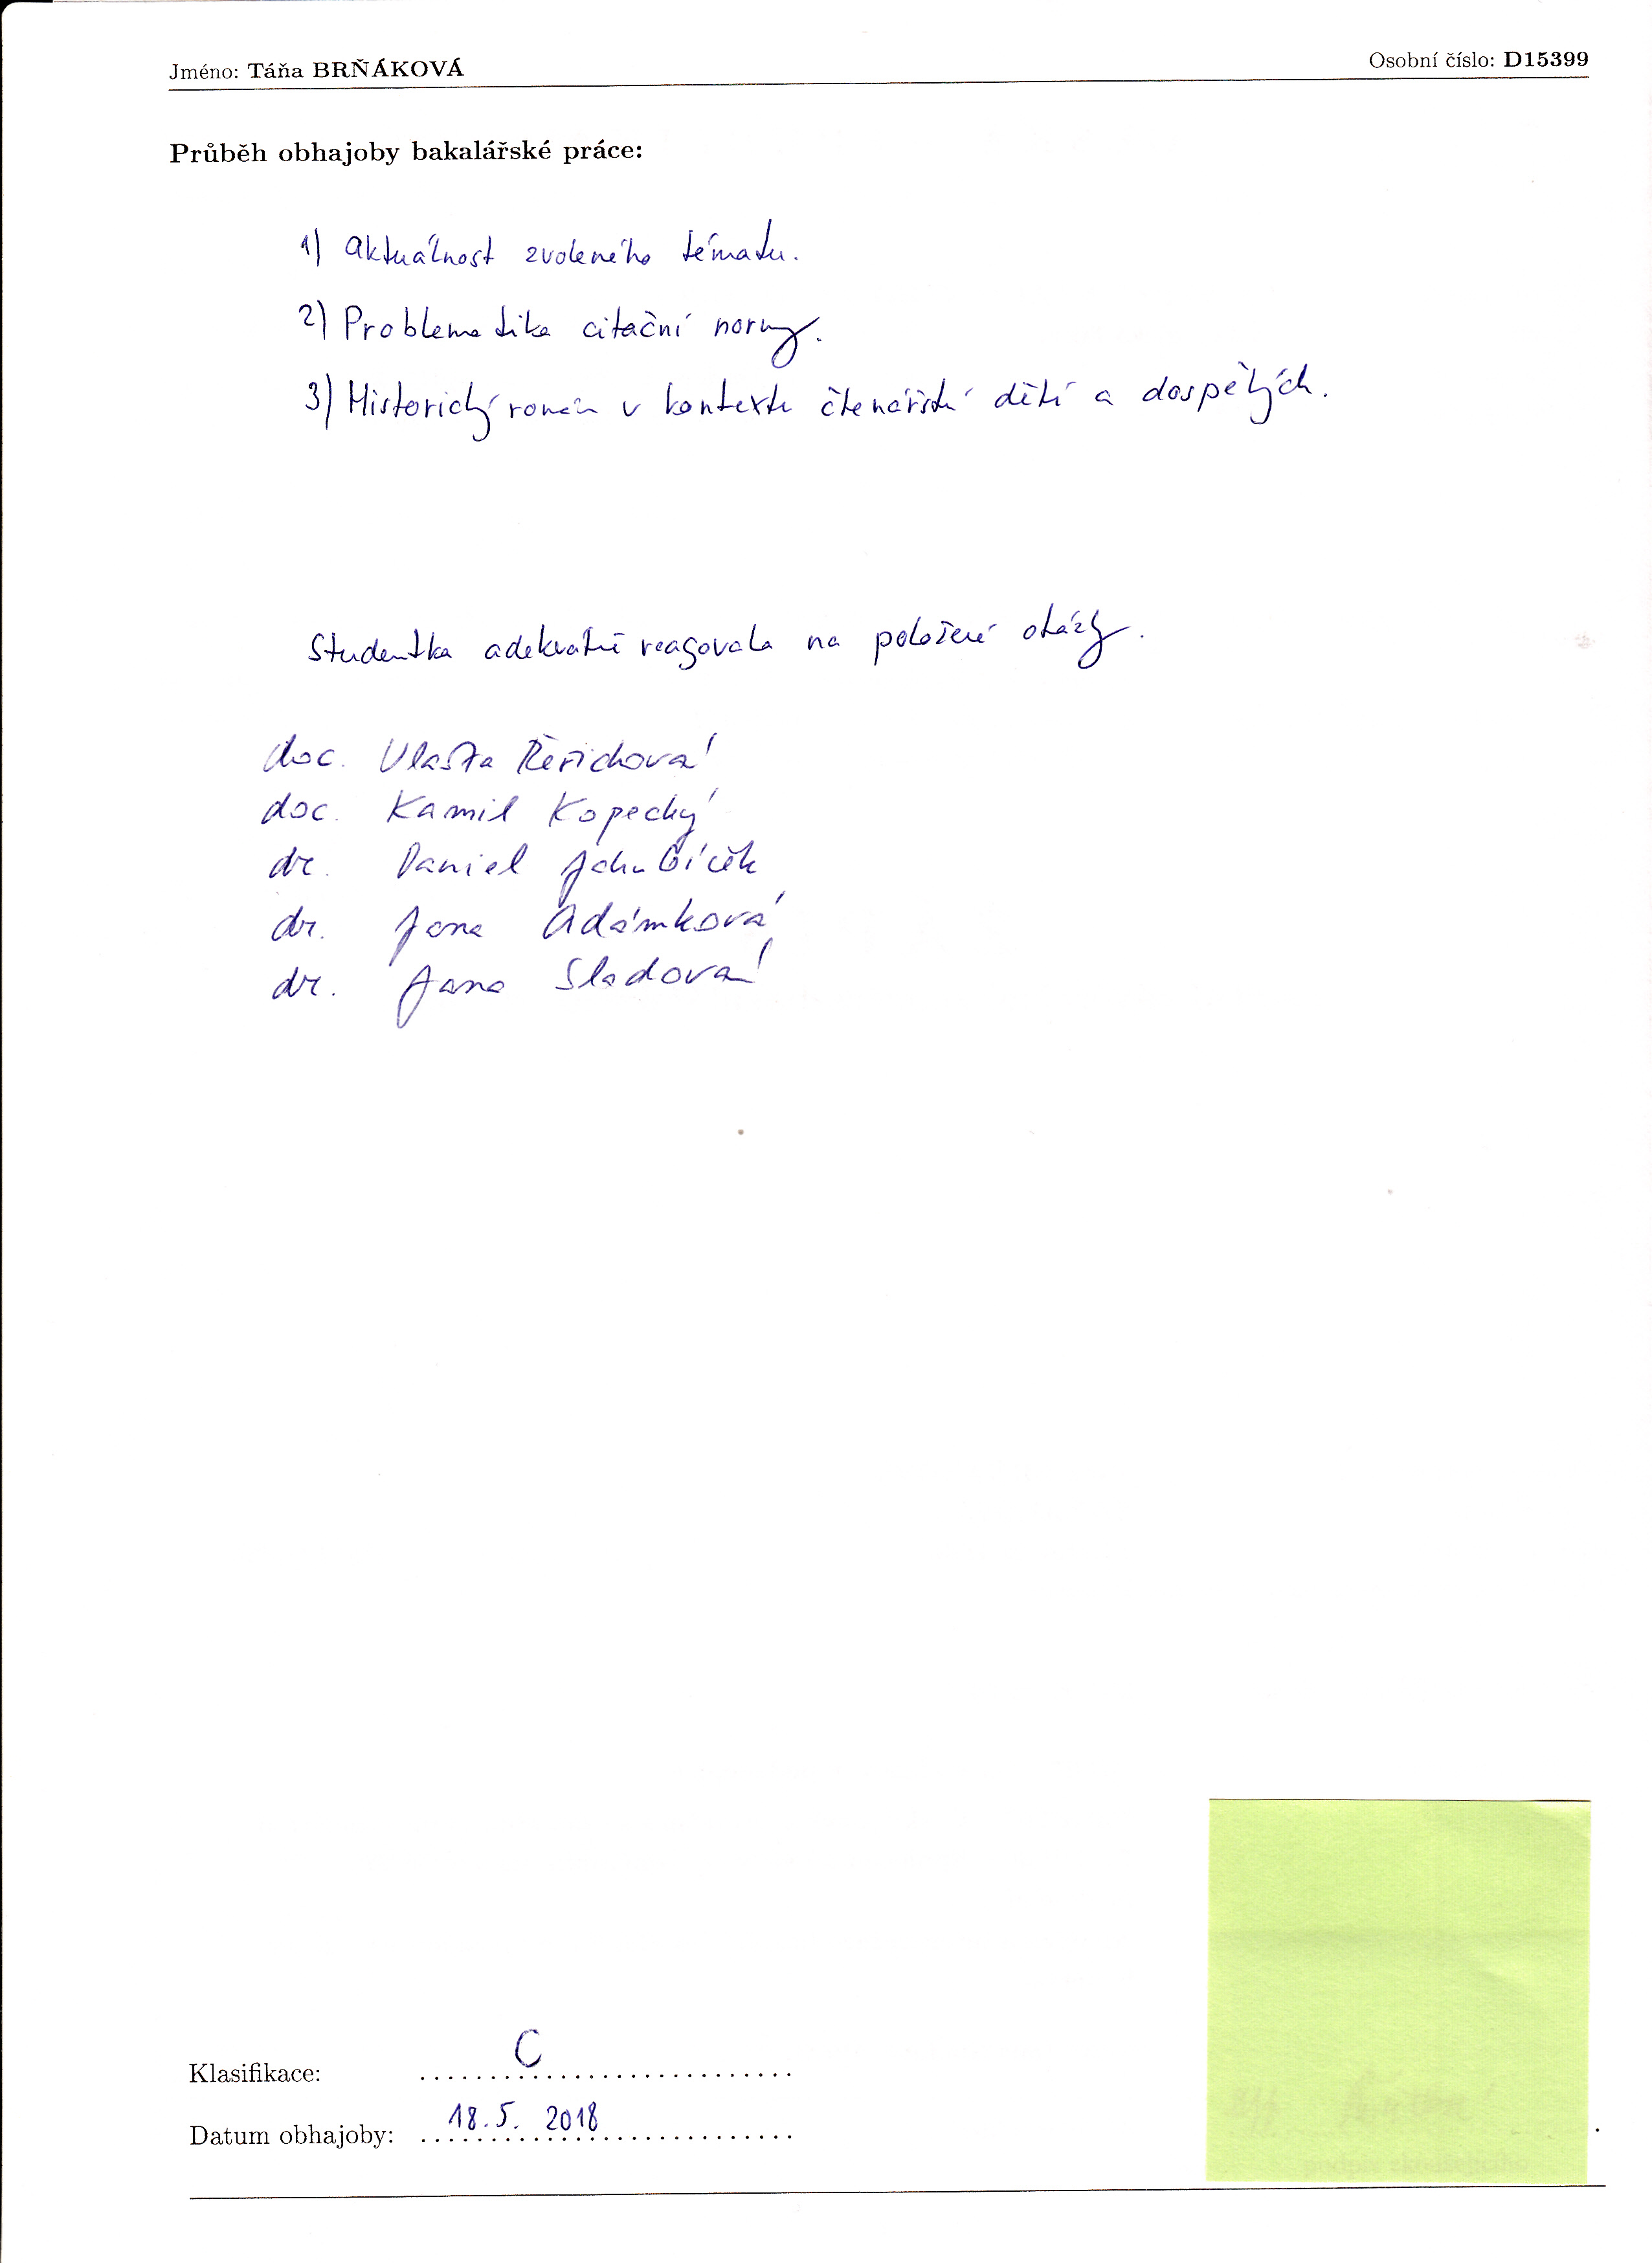 Jméno: Táňa BRŇÁKOVÁ Osobní číslo: D15399
Průběh obhajoby bakalářské práce:
1) Aktuálnost zvoleného tématu.
2) Problematika citační normy.
3) Historický román v kontextu čtenářství dětí a dospělých.
Studentka adekvátně reagovala na položené otázky.
doc. Vlasta Řeřichová
doc. Kamil Kopecký
dr. Daniel Jakubíček
dr. Jana Adámková
dr. Jana Sladová
Klasifikace: C
Datum obhajoby: 18. 5. 2018